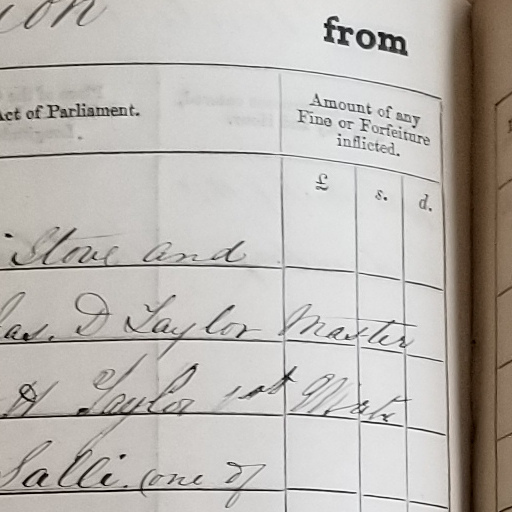 from
Act of Parliament.
Amount of any
Fine or Forfeiture
inflicted.
£ s. d.
Stone and
Jas. D Taylor Master
H Taylor 1st Mate
Salli (one of